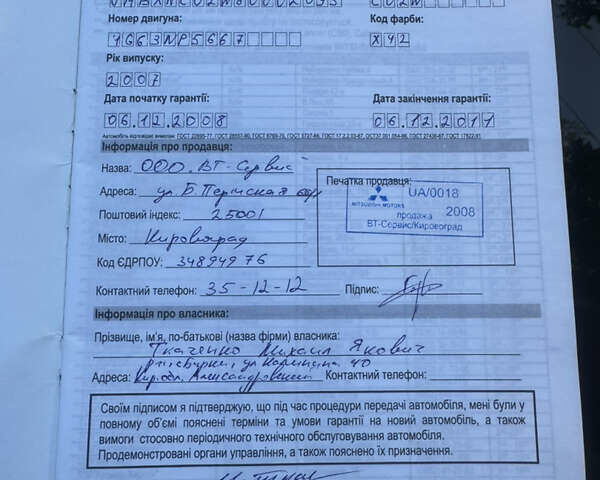 Номер двигуна: Код фарби:
4G63NP5667 X42
Рік випуску:
2007
Дата початку гарантії: Дата закінчення гарантії:
06.12.2008 06.12.2011
Інформація про продавця:
Назва: ООО. ВТ-Сервис
Адреса: ул Б. Пермская
Поштовий індекс: 25001
Місто: Кировоград
Код ЄДРПОУ: 34894976
Контактний телефон: 35-12-12 Підпис:
Печатка продавця:
UA/0018
MITSUBISHI MOTORS
продажа 2008
ВТ-Сервіс/Кировоград
Інформація про власника:
Прізвище, ім'я, по-батькові (назва фірми) власника:
Ткаченко Михаил Якович
ул Калинина 40
Адреса: Александровский Контактний телефон:
Своїм підписом я підтверджую, що під час процедури передачі автомобіля, мені були у
повному об'ємі пояснені терміни та умови гарантії на новий автомобіль, а також
вимоги стосовно періодичного технічного обслуговування автомобіля.
Продемонстровані органи управління, а також пояснено їх призначення.